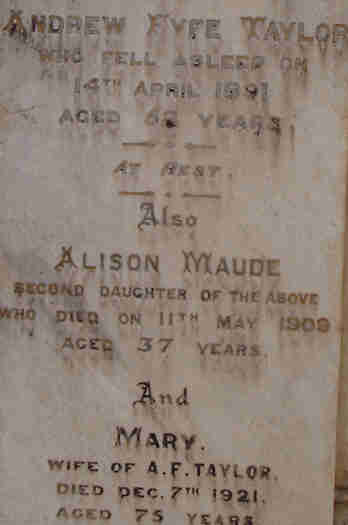 ANDREW FYFE TAYLOR
WHO FELL ASLEEP ON
14TH APRIL 1891
AGED YEARS.
AT REST.
Also
ALISON MAUDE
SECOND DAUGHTER OF THE ABOVE
WHO DIED ON 11TH MAY 1909
AGED 37 YEARS.
And
MARY.
WIFE OF A.F. TAYLOR.
DIED DEC. 7TH 1921.
AGED 75 YEARS.